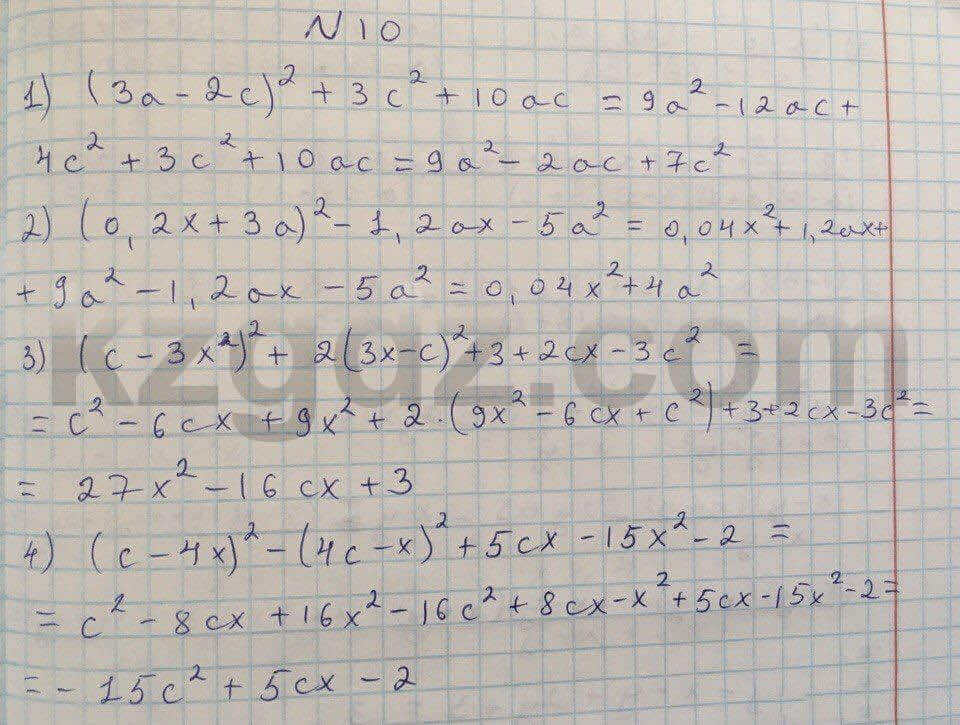 N 10
1) (3a - 2c)² + 3c² + 10ac = 9a² - 12ac +
4c² + 3c² + 10ac = 9a² - 2ac + 7c²
2) (0,2x + 3a)² - 1,2ax - 5a² = 0,04x² + 1,2ax +
+ 9a² - 1,2ax - 5a² = 0,04x² + 4a²
3) (c - 3x²)² + 2(3x - c)² + 3 + 2cx - 3c² =
= c² - 6cx + 9x² + 2 · (9x² - 6cx + c²) + 3 + 2cx - 3c² =
= 27x² - 16cx + 3
4) (c - 4x)² - (4c - x)² + 5cx - 15x² - 2 =
= c² - 8cx + 16x² - 16c² + 8cx - x² + 5cx - 15x² - 2 =
= - 15c² + 5cx - 2
kzgdz.com